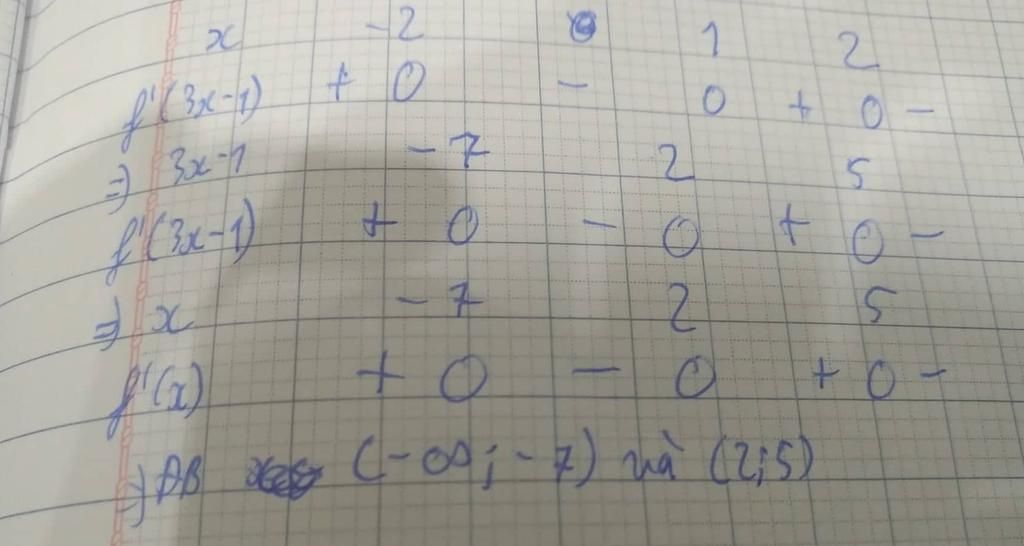 x -2 1 2
f'(3x-1) + 0 - 0 + 0 -
=) 3x-1 -7 2 5
f'(3x-1) + 0 - 0 + 0 -
=) x -7 2 5
f'(x) + 0 - 0 + 0 -
=) ĐB (-∞; -7) và (2;5)